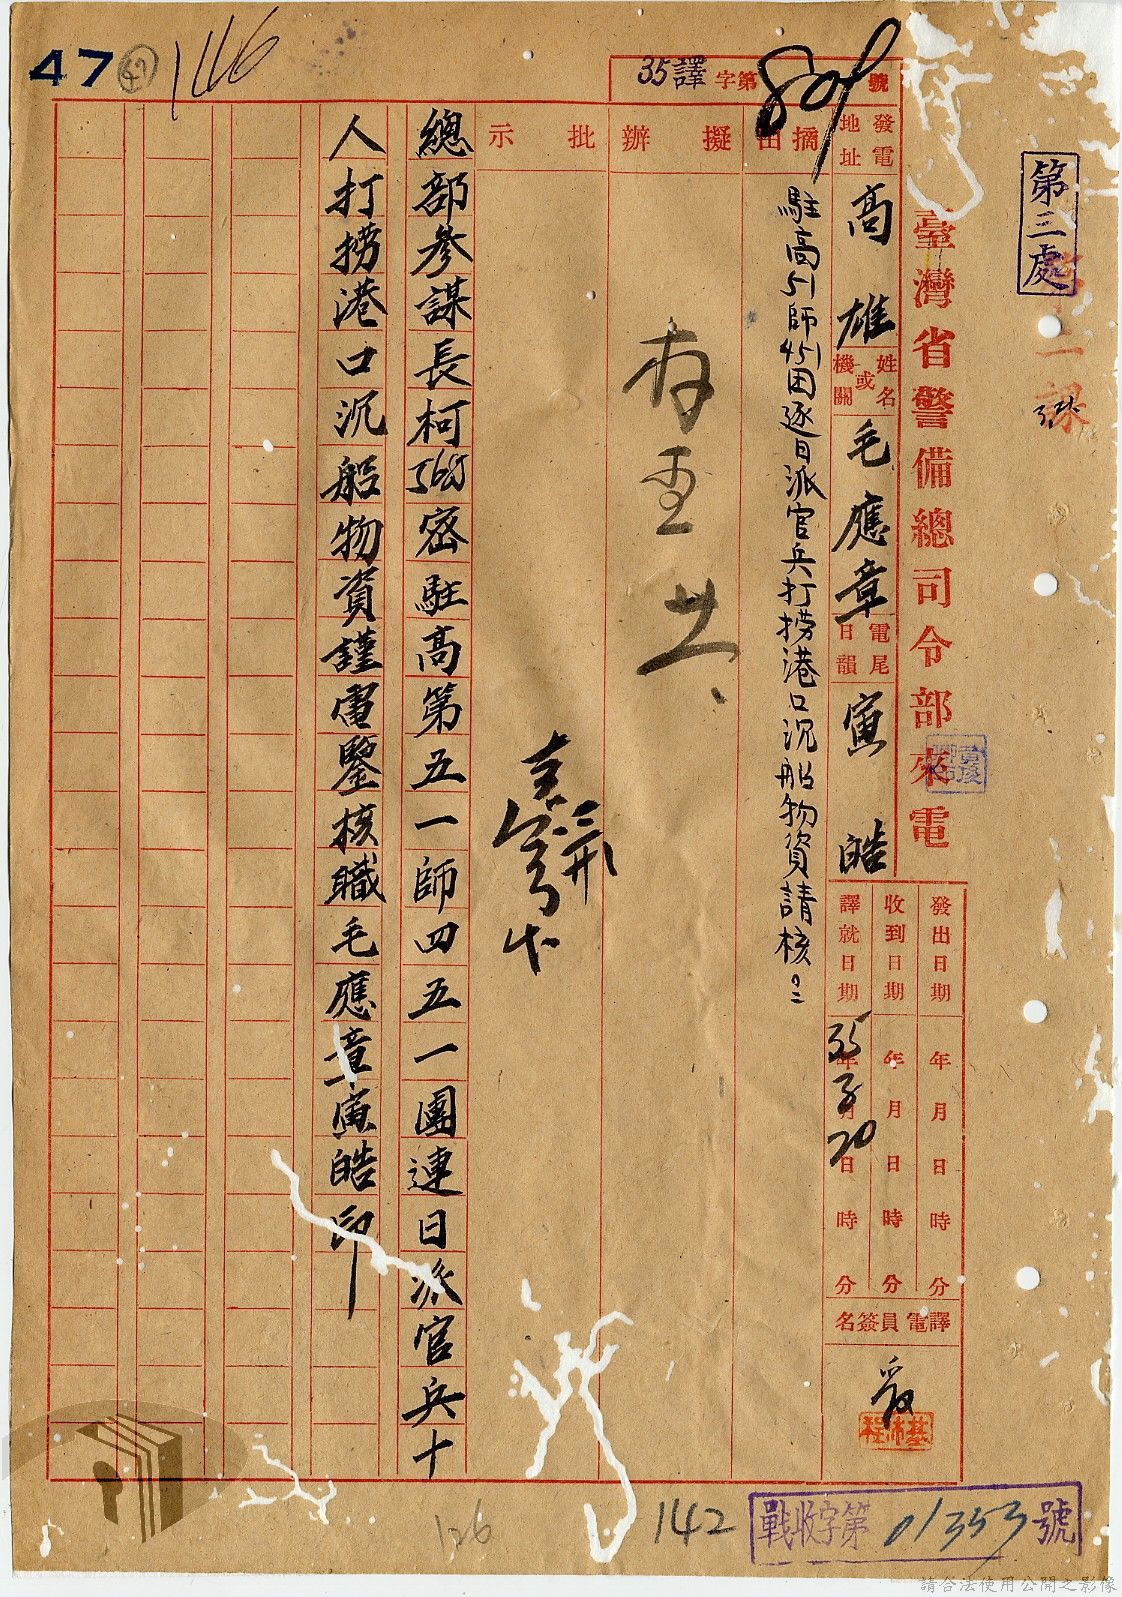 第三處
臺灣省警備總司令部來電
35譯字第804號
發電地址
高雄
姓名或機關
毛應章
電尾日韻
寅皓
發出日期 年月日時分
收到日期 年月日時分
譯就日期 35年3月20日時分
譯電員簽名
程沛基
摘由
駐高51師451团逐日派官兵打捞港口沉船物資請核。
擬辦
批示
總部參謀長柯568密駐高第五一師四五一團連日派官兵十
人打撈港口沉船物資謹電鑒核職毛應章寅皓印
47
47
1146
126
142
戰收字第01353號
請合法使用公開之影像